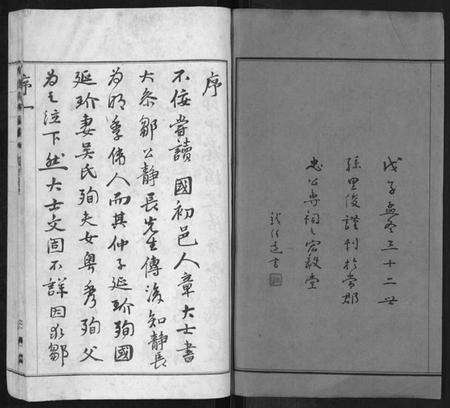 戊子孟冬三十二世
孫里俊謹刊於常郡
忠公專祠之宏毅堂
序
不佞嘗讀 國初邑人章大士書
大參鄒公靜長先生傳後知靜長
為明季偉人而其仲子延玠殉國
延玠妻吳氏殉夫女粵秀殉父
為之泣下然大士文固不詳因求鄒
序一